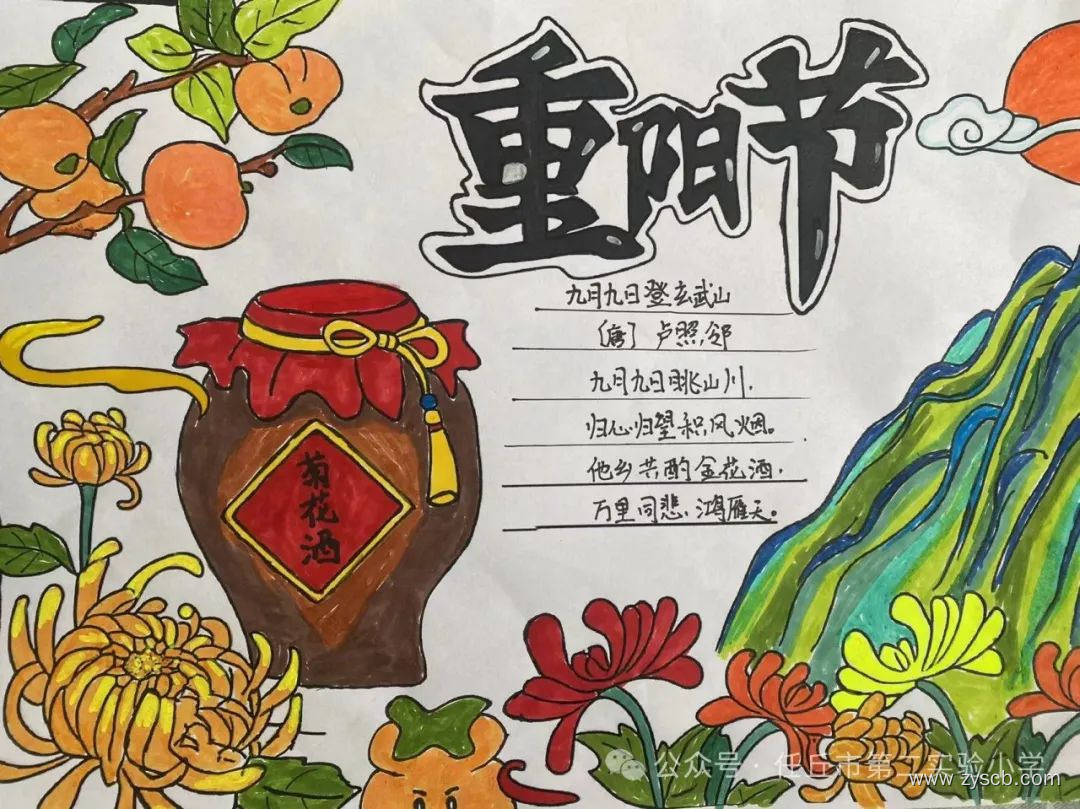 重阳节
九月九日登玄武山
〔唐〕卢照邻
九月九日眺山川,
归心归望积风烟。
他乡共酌金花酒,
万里同悲鸿雁天。
菊花酒
公众号 · 任丘市第二实验小学
www.zyscb.com